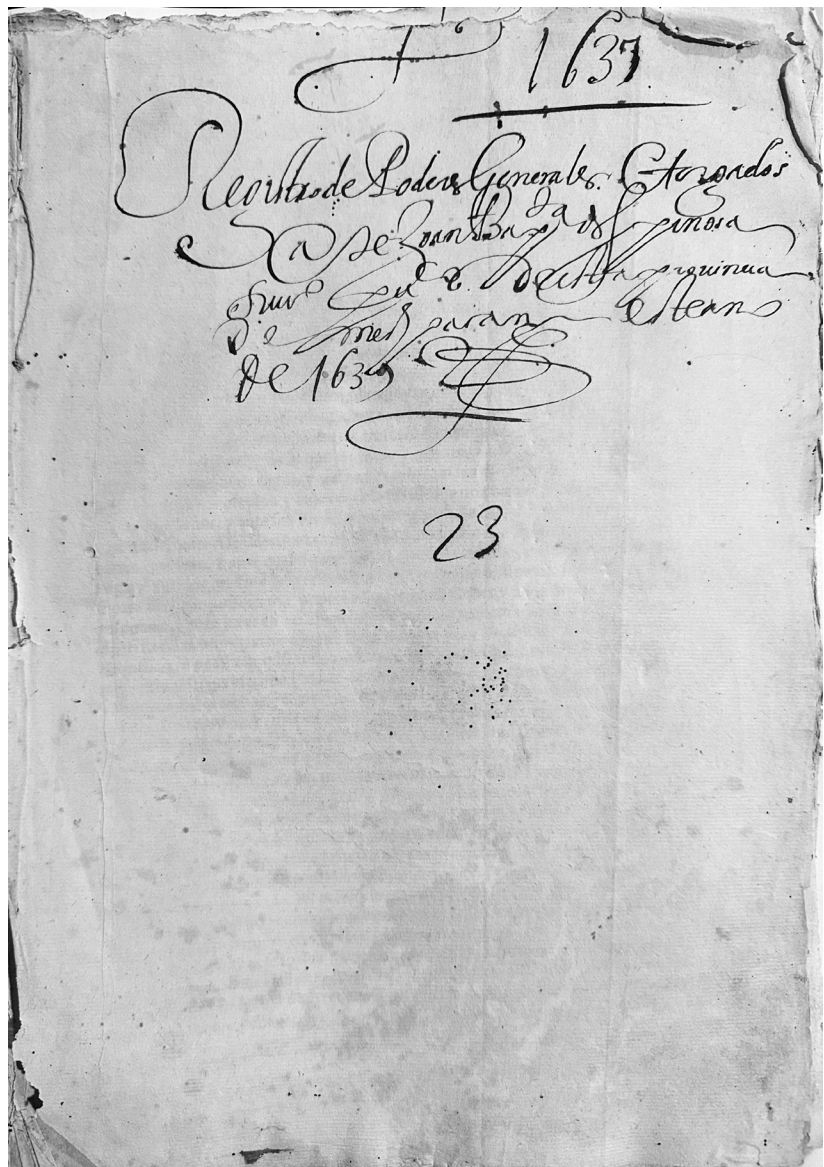 1637
Registro de Poderes Generales Otorgados
Ante Joan Bap.ta despinosa
pu.co desta provincia
este ano
de 1637
23